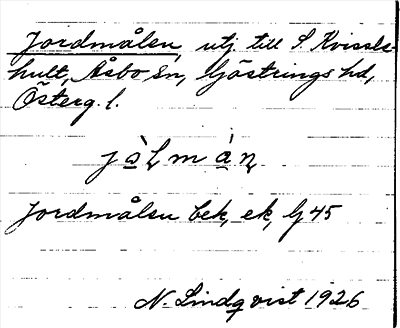 Jordmålen, utj till S. Kvissls-
hult, Åsbo sn, Göstrings hd,
Österg. l.
Jordmålen bek, ek, G 45
N. Lindqvist 1926